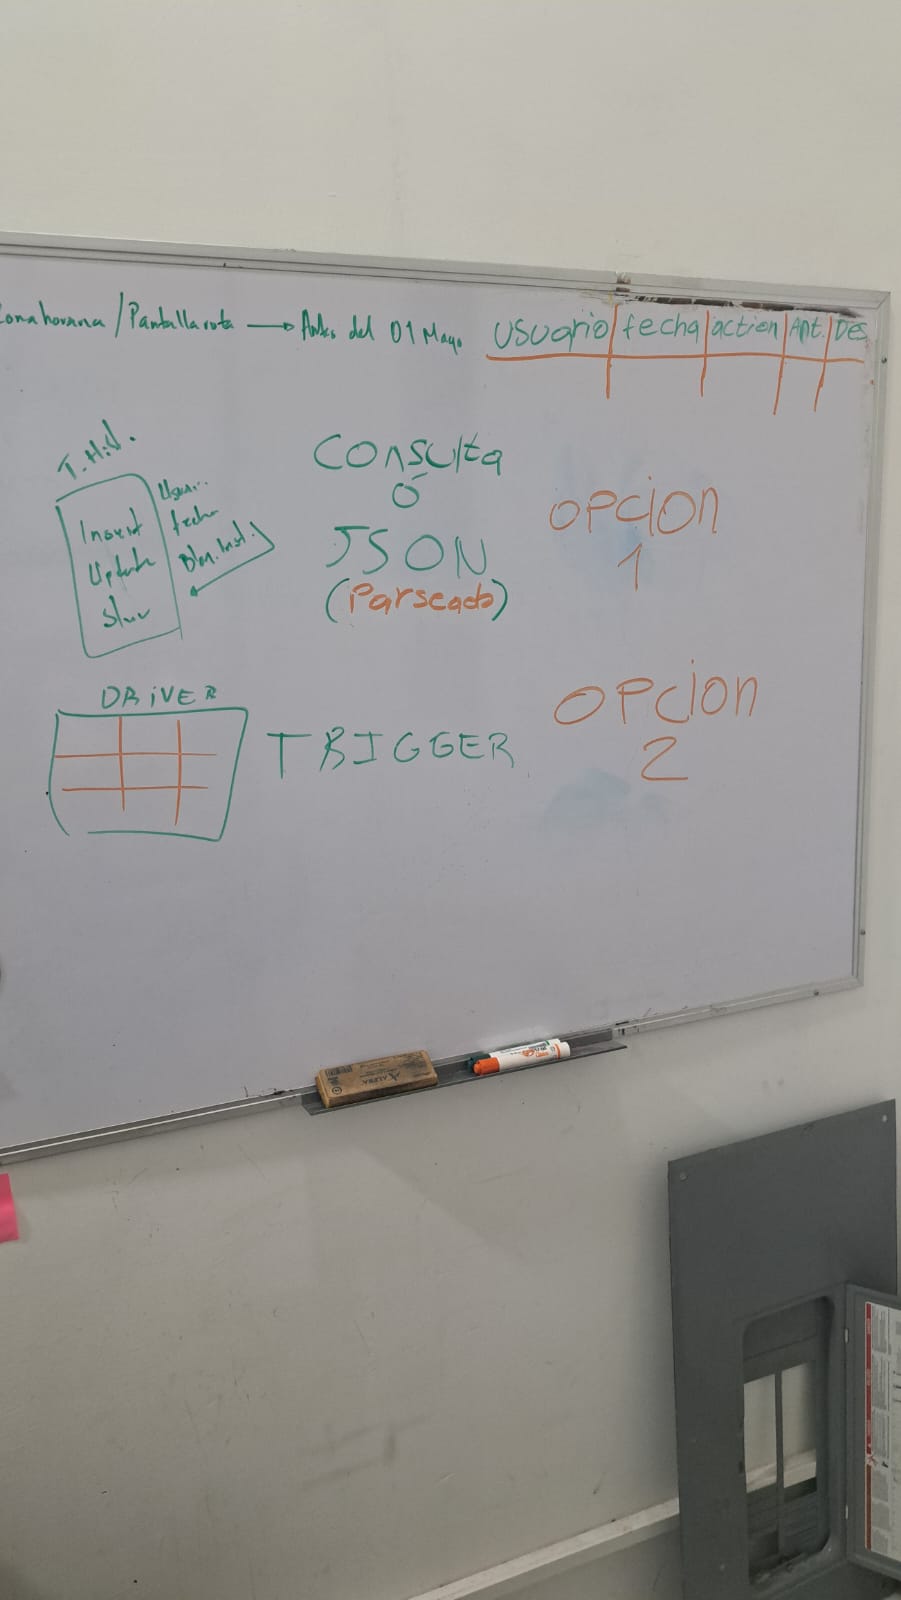 Zona horaria / Pantalla rota → Antes del 01 Mayo
Usuario | fecha | action | Ant. | Des
T.H.U.
Insert
Update
Usuar..
fecha
Consulta
Ó
JSON
(Parseado)
OPCION
1
DRIVER
TRIGGER
OPCION
2